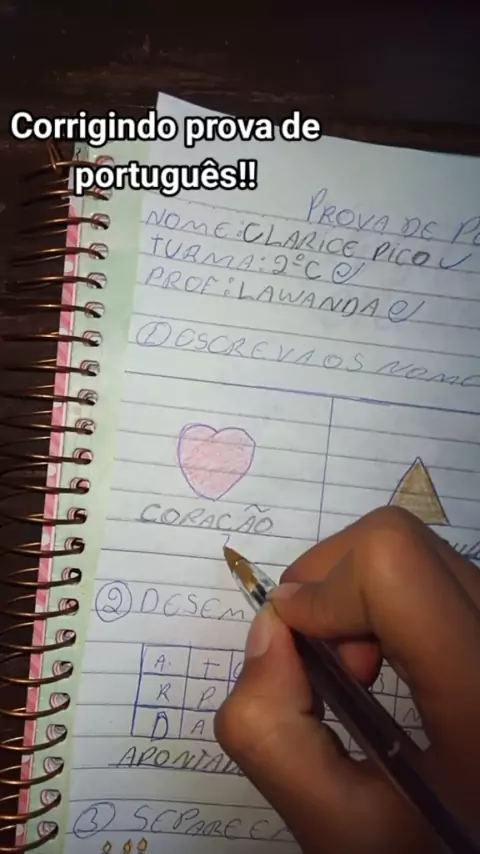 Corrigindo prova de
português!!
PROVA DE P
NOME: CLARICE PICO
TURMA: 2ºC
PROF: LAWANDA
① ESCREVA OS NOME
CORAÇÃO
② DESEM
A T
R P
D A
APONTAD
③ SEPARE E